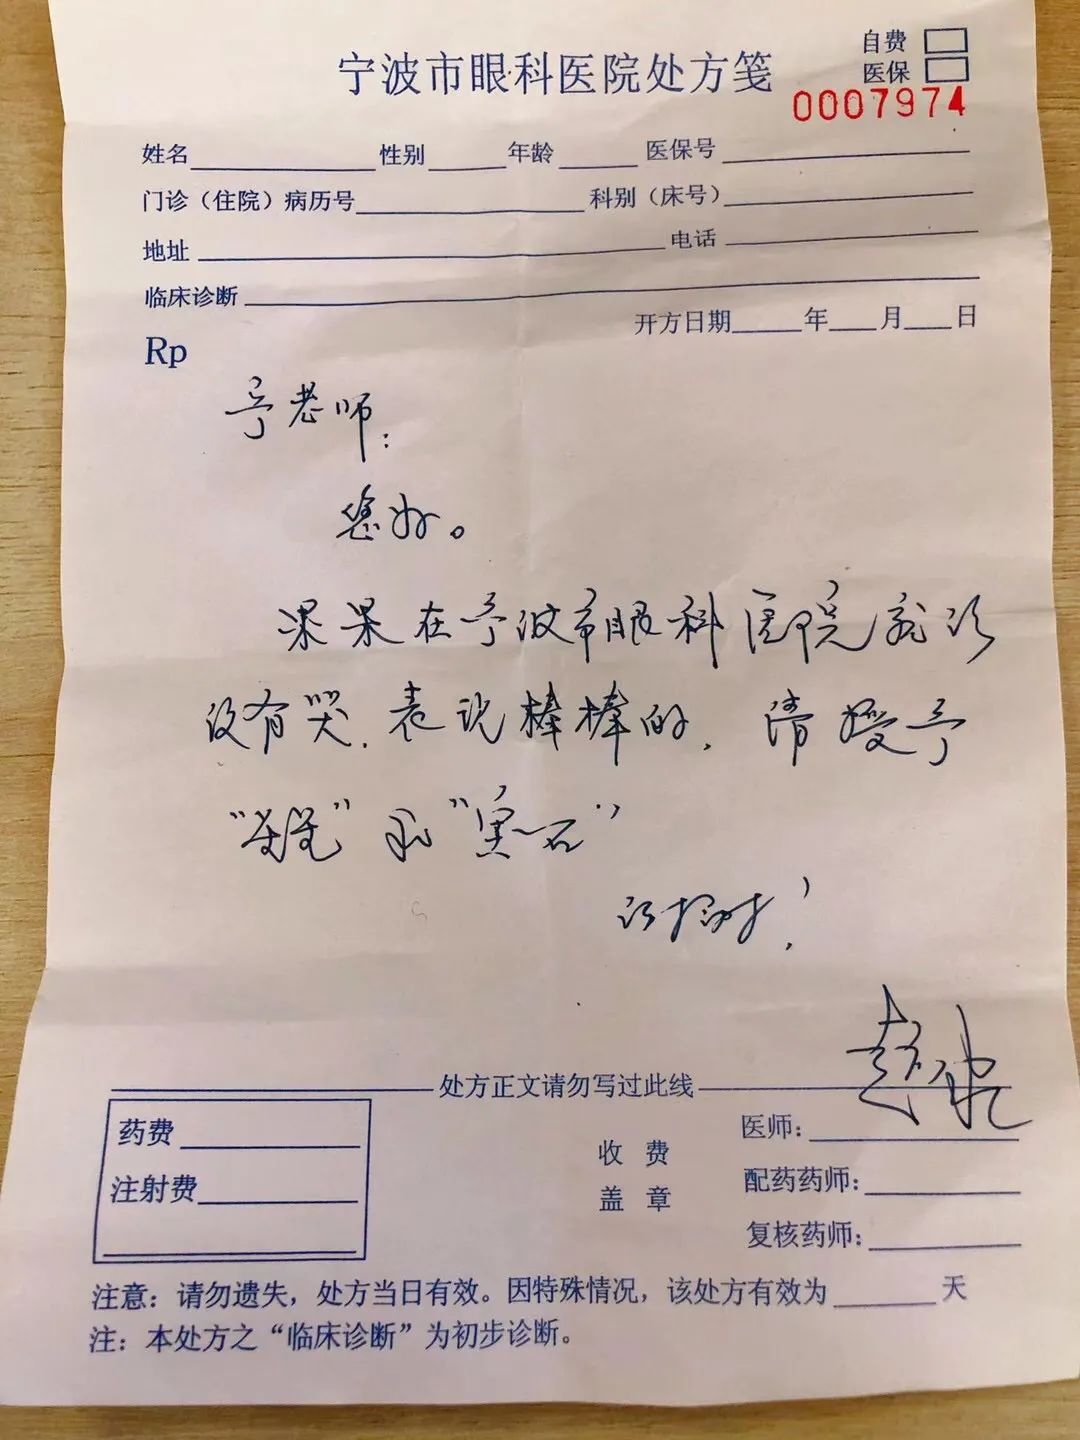 宁波市眼科医院处方笺
自费
医保
0007974
姓名 性别 年龄 医保号
门诊（住院）病历号 科别（床号）
地址 电话
临床诊断
开方日期 年 月 日
Rp
宁老师：
您好。
果果在宁波市眼科医院就诊
没有哭，表现棒棒的，请授予
和“宝石”
谢谢！
处方正文请勿写过此线
药费
注射费
收费
盖章
医师：
配药药师：
复核药师：
注意：请勿遗失，处方当日有效。因特殊情况，该处方有效为 天
注：本处方之“临床诊断”为初步诊断。